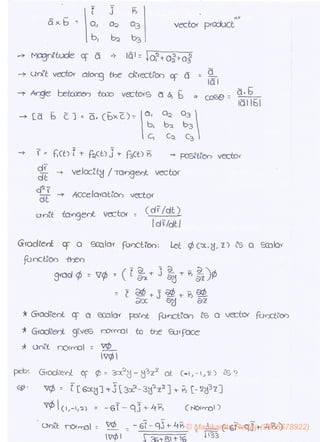 ā x b̄ = | ī j̄ k̄ |
| a₁ a₂ a₃ | vector product
| b₁ b₂ b₃ |
→ Magnitude of ā ⇒ |ā| = √a₁²+a₂²+a₃²
→ unit vector along the direction of ā = ā/|ā|
→ Angle between two vectors ā & b̄ ⇒ cosθ = ā.b̄/|ā||b̄|
→ [ā b̄ c̄] = ā.(b̄×c̄) = | a₁ a₂ a₃ |
| b₁ b₂ b₃ |
| c₁ c₂ c₃ |
→ r̄ = f₁(t) ī + f₂(t) j̄ + f₃(t) k̄ → position vector
dr̄/dt → velocity / Tangent vector
d²r̄/dt → Accelaration vector
unit tangent vector = (dr̄/dt)/|dr̄/dt|
Gradient of a scalar function: Let φ(x,y,z) is a scalar
function then
grad φ = ∇φ = ( ī ∂/∂x + j̄ ∂/∂y + k̄ ∂/∂z )φ
= ī ∂φ/∂x + j̄ ∂φ/∂y + k̄ ∂φ/∂z
* Gradient of a scalar point function is a vector function
* Gradient gives normal to the surface
* unit normal = ∇φ/|∇φ|
pcb: Gradient of φ = 3x²y - y³z² at (-1,-1,2) is?
∇φ = ī [6xy] + j̄ [3x²-3y²z²] + k̄ [-2y³z]
∇φ|(1,-1,2) = -6ī - 9j̄ + 4k̄ (Normal)
unit normal = ∇φ/|∇φ| = -6ī - 9j̄ + 4k̄/√36+81+16